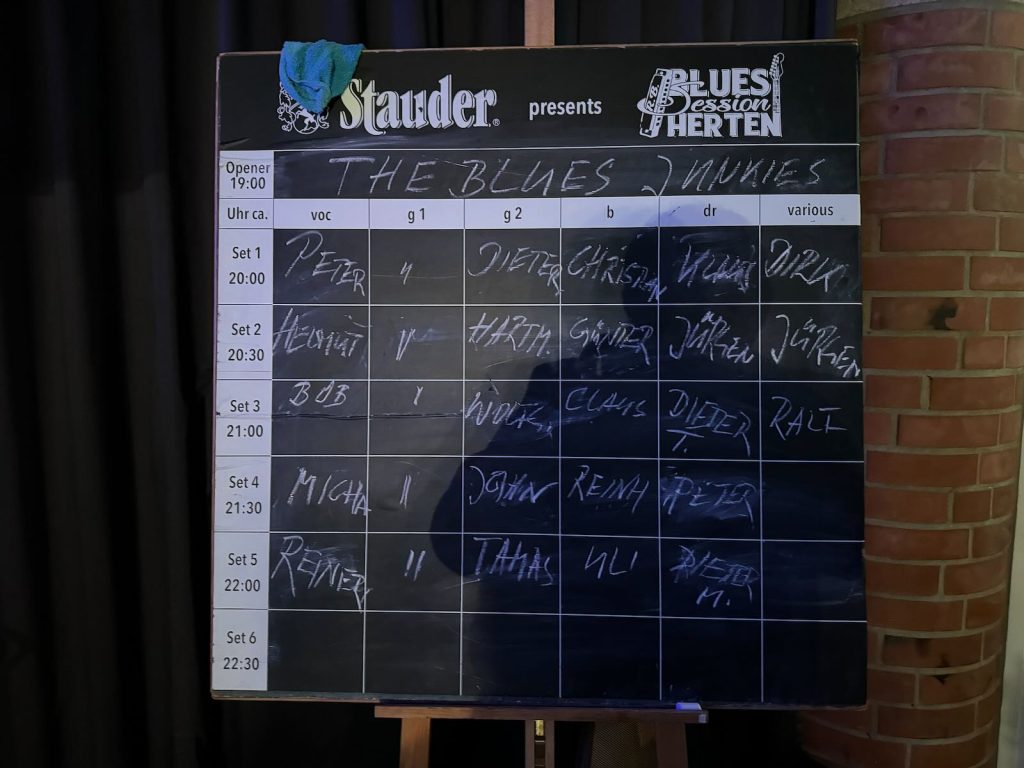 Stauder® presents BLUES Session HERTEN
Opener 19:00 THE BLUES JUNKIES
Uhr ca. voc g 1 g 2 b dr various
Set 1 20:00 PETER " DIETER CHRISTIAN DIRK
Set 2 20:30 HELMUT " HARTM. GÜNTER JÜRGEN JÜRGEN
Set 3 21:00 BOB " CLAUS DIETER T. RALF
Set 4 21:30 MICHA " JOHN REINH PETER
Set 5 22:00 REINER " TAMAS ULI DIETER M.
Set 6 22:30